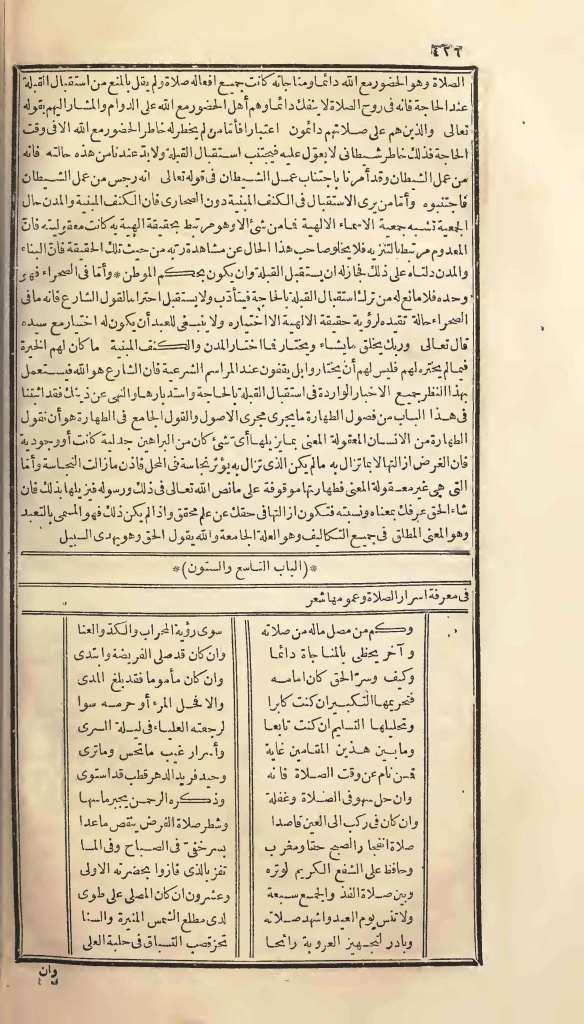 ٤٢٦
الصلاة وهو الحضور مع الله دائما ومناجاته كانت جميع افعاله صلاة ولم يقل بالمنع من استقبال القبلة
عند الحاجة فانه فى روح الصلاة لا ينفك دائما وهم أهل الحضور مع الله على الدوام والمشار اليهم بقوله
تعالى والذين هم على صلاتهم دائمون اعتبارا فأما من لم يخطر له خاطر الحضور مع الله الا فى وقت
الحاجة فذلك خاطر شيطانى لا يعوّل عليه فيجتنب استقبال القبلة ولا بدّ عندنا من هذه حالته فانه
من عمل الشيطان وقد أمرنا باجتناب عمل الشيطان فى قوله تعالى انه رجس من عمل الشيطان
فاجتنبوه وأما من يرى الاستقبال فى الكنف المبنية دون الصحارى فان الكنف المبنية والمدن حال
الجمعية تشبه جمعية الاسماء الالهية فما من شئ الا وهو مرتبط بحقيقة الهية به كانت معقوليته فانّ
المعدوم مرتبط بالتنزيه فلا يخلو صاحب هذا الحال عن مشاهدة ربه من حيث تلك الحقيقة فانّ البناء
والمدن دلتاه على ذلك فجاز له ان يستقبل القبلة وان يكون بحكم الموطن * وأمّا فى الصحراء فهو
وحده فلا مانع له من ترك استقبال القبلة بالحاجة فيتأدّب ولا يستقبل احتراما لقول الشارع فانه ما فى
الصحراء حالة تقيده لرؤية حقيقة الالهية الا اختياره ولا ينبغى للعبد أن يكون له اختيار مع سيده
قال تعالى وربك يخلق ما يشاء ويختار فما اختار المدن والكنف المبنية ما كان لهم الخيرة
فيما لم يختره لهم فليس لهم أن يختاروا بل يقفون عند المراسم الشرعية فان الشارع هو الله فيستعمل
بهذا النظر جميع الاخبار الواردة فى استقبال القبلة بالحاجة واستدبارها والنهى عن ذلك فقد اثبتنا
فى هذا الباب من فصول الطهارة ما يجرى مجرى الاصول والقول الجامع فى الطهارة هو أن نقول
الطهارة من الانسان المعقولة المعنى بما يزيلها أىّ شئ كان من البراهين جدلية كانت أو وجودية
فان الغرض ازالتها لا بما تزال به ما لم يكن الذى تزال به يؤثر نجاسة فى المحل فاذن ما زالت النجاسة وأمّا
التى هى غير معقولة المعنى فطهارتها موقوفة على ما نص الله تعالى فى ذلك ورسوله فيزيلها بذلك فان
شاء الحق عرفك بمعناه ونسبته فتكون ازالتها فى حقك عن علم محقق واذا لم يكن ذلك فهو المسمى بالتعبد
وهو المعنى المطلق فى جميع التكاليف وهو العلة الجامعة والله يقول الحق وهو يهدى السبيل
*(الباب التاسع والستون)*
فى معرفة اسرار الصلاة وعمومها شعر
وكم من مصل ماله من صلاته سوى رؤية المحراب والكدّ والعنا
وآخر يحظى بالمناجاة دائما وان كان قد صلى الفريضة وابتدى
وكيف وسرّ الحق كان امامه وان كان مأموما فقد بلغ المدى
فتحريمها التكبيران كنت كابرا والا فحل المرء أو حرمه سوا
وتحليلها التسليم ان كنت تابعا لرجعته العلياء فى ليلة السرى
وما بين هذين المقامين غاية وأسرار غيب ما تحس وما ترى
فمن نام عن وقت الصلاة فانه وحيد فريد الدهر قطب قد استوى
وان حل سهو فى الصلاة وغفلة وذكره الرحمن يجبر ماسها
وان كان فى ركب الى العين قاصدا وشطر صلاة الفرض ينقص ما عدا
صلاة انفجار الصبح حقا ومغرب يسر خفىّ فى الصباح وفى المسا
وحافظ على الشفع الكريم لوتره تفز بالذى فازوا بحضرته الاولى
وبين صلاة الفذ والجمع سبعة وعشرون ان كان المصلى على طوى
ولا تنس يوم العيد واشهد صلاته لدى مطلع الشمس المنيرة والسنا
وبادر لتجهيز العروبة رائحا تحز قصب السباق فى حلبة العلى
وان